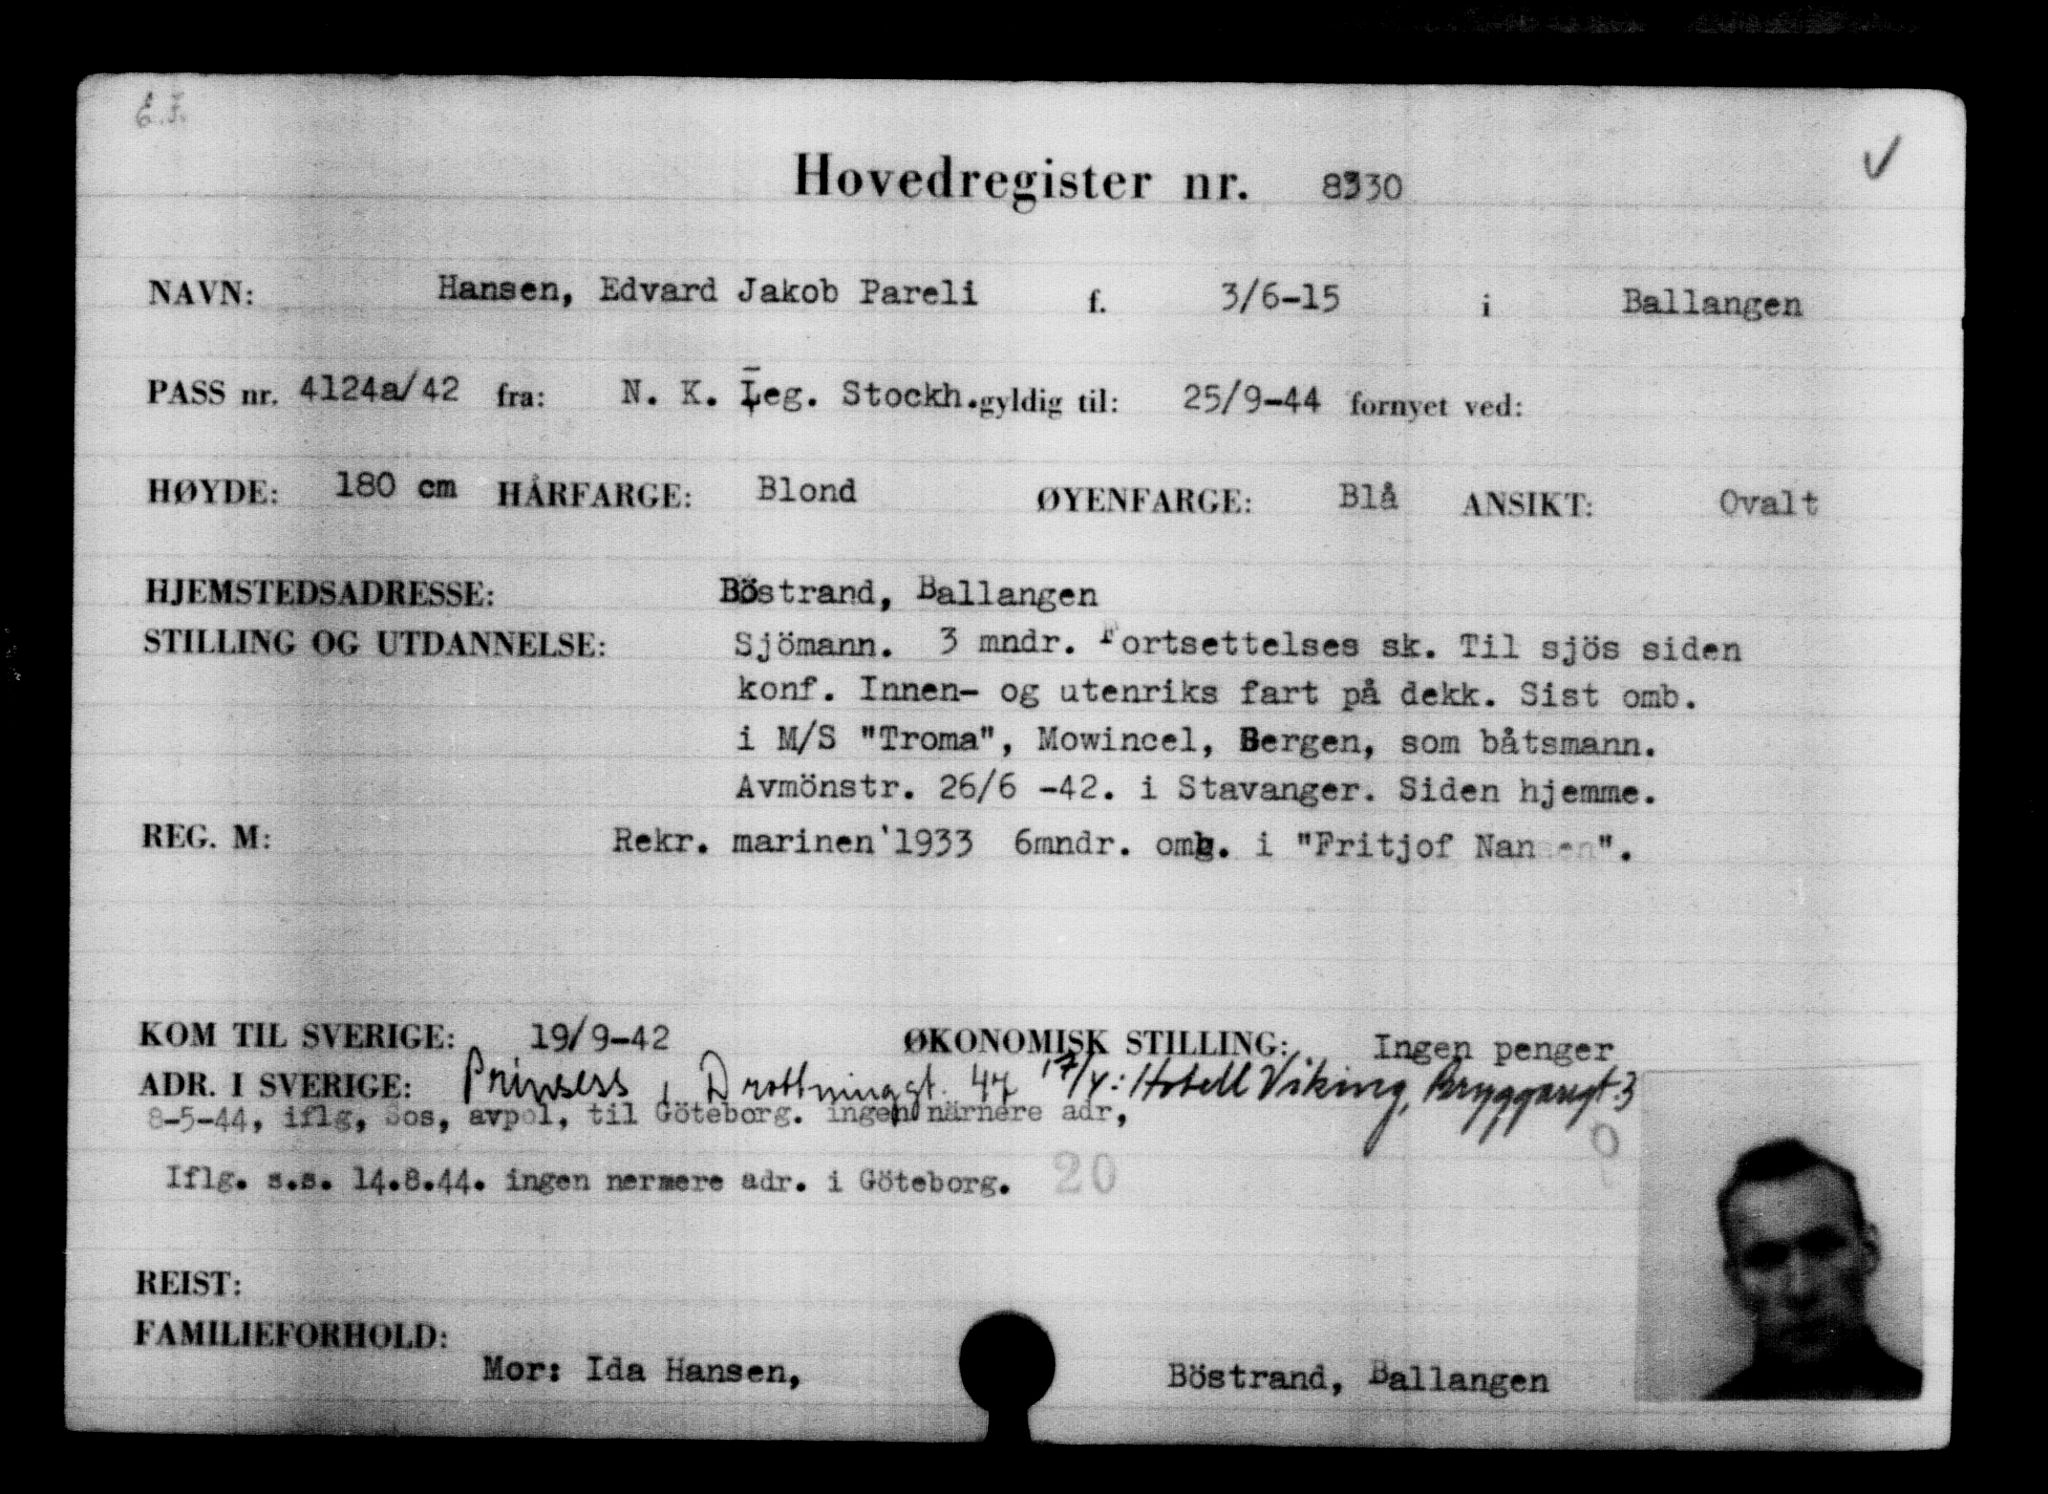 E.J.
Hovedregister nr. 8330
NAVN: Hansen, Edvard Jakob Pareli f. 3/6-15 i Ballangen
PASS nr. 4124a/42 fra: N. K. Leg. Stockh. gyldig til: 25/9-44 fornyet ved:
HØYDE: 180 cm HÅRFARGE: Blond ØYENFARGE: Blå ANSIKT: Ovalt
HJEMSTEDSADRESSE: Böstrand, Ballangen
STILLING OG UTDANNELSE: Sjömann. 3 mndr. Fortsettelses sk. Til sjös siden
konf. Innen- og utenriks fart på dekk. Sist omb.
i M/S "Troma", Mowincel, Bergen, som båtsmann.
Avmönstr. 26/6 -42. i Stavanger. Siden hjemme.
REG. M: Rekr. marinen'1933 6mndr. omb. i "Fritjof Nansen".
KOM TIL SVERIGE: 19/9-42 ØKONOMISK STILLING: Ingen penger
ADR. I SVERIGE: Prinsess, Drottninggt. 47 17/4: Hotell Viking, Bryggaregt. 3
8-5-44, iflg, Sos, avpol, til Göteborg. ingen närnere adr,
Iflg. s.s. 14.8.44. ingen nermere adr. i Göteborg. 20
REIST:
FAMILIEFORHOLD:
Mor: Ida Hansen, Böstrand, Ballangen